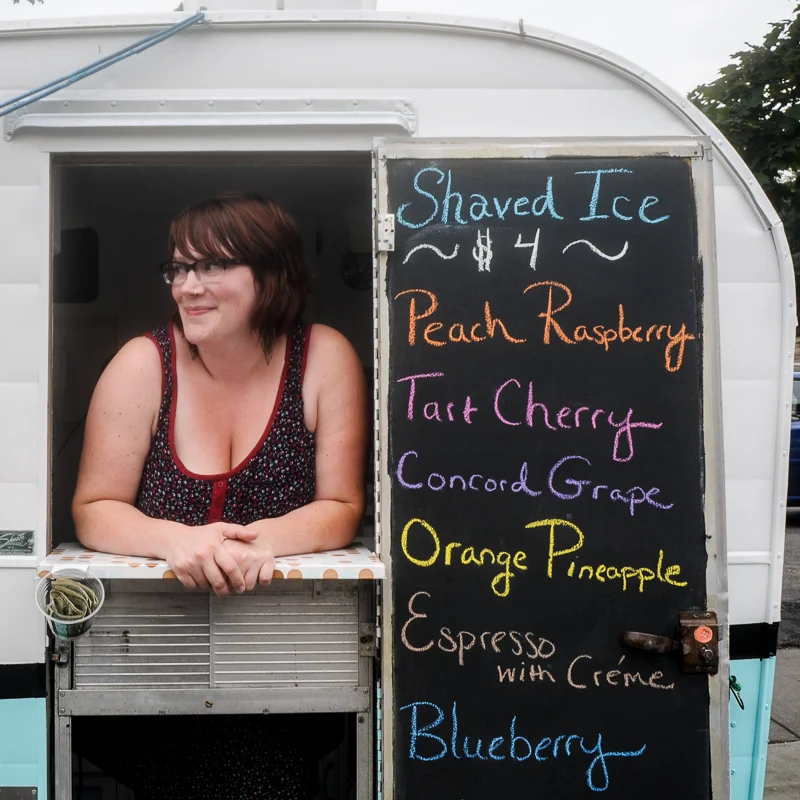 Shaved Ice
~ $ 4 ~
Peach Raspberry
Tart Cherry
Concord Grape
Orange Pineapple
Espresso
with Créme
Blueberry